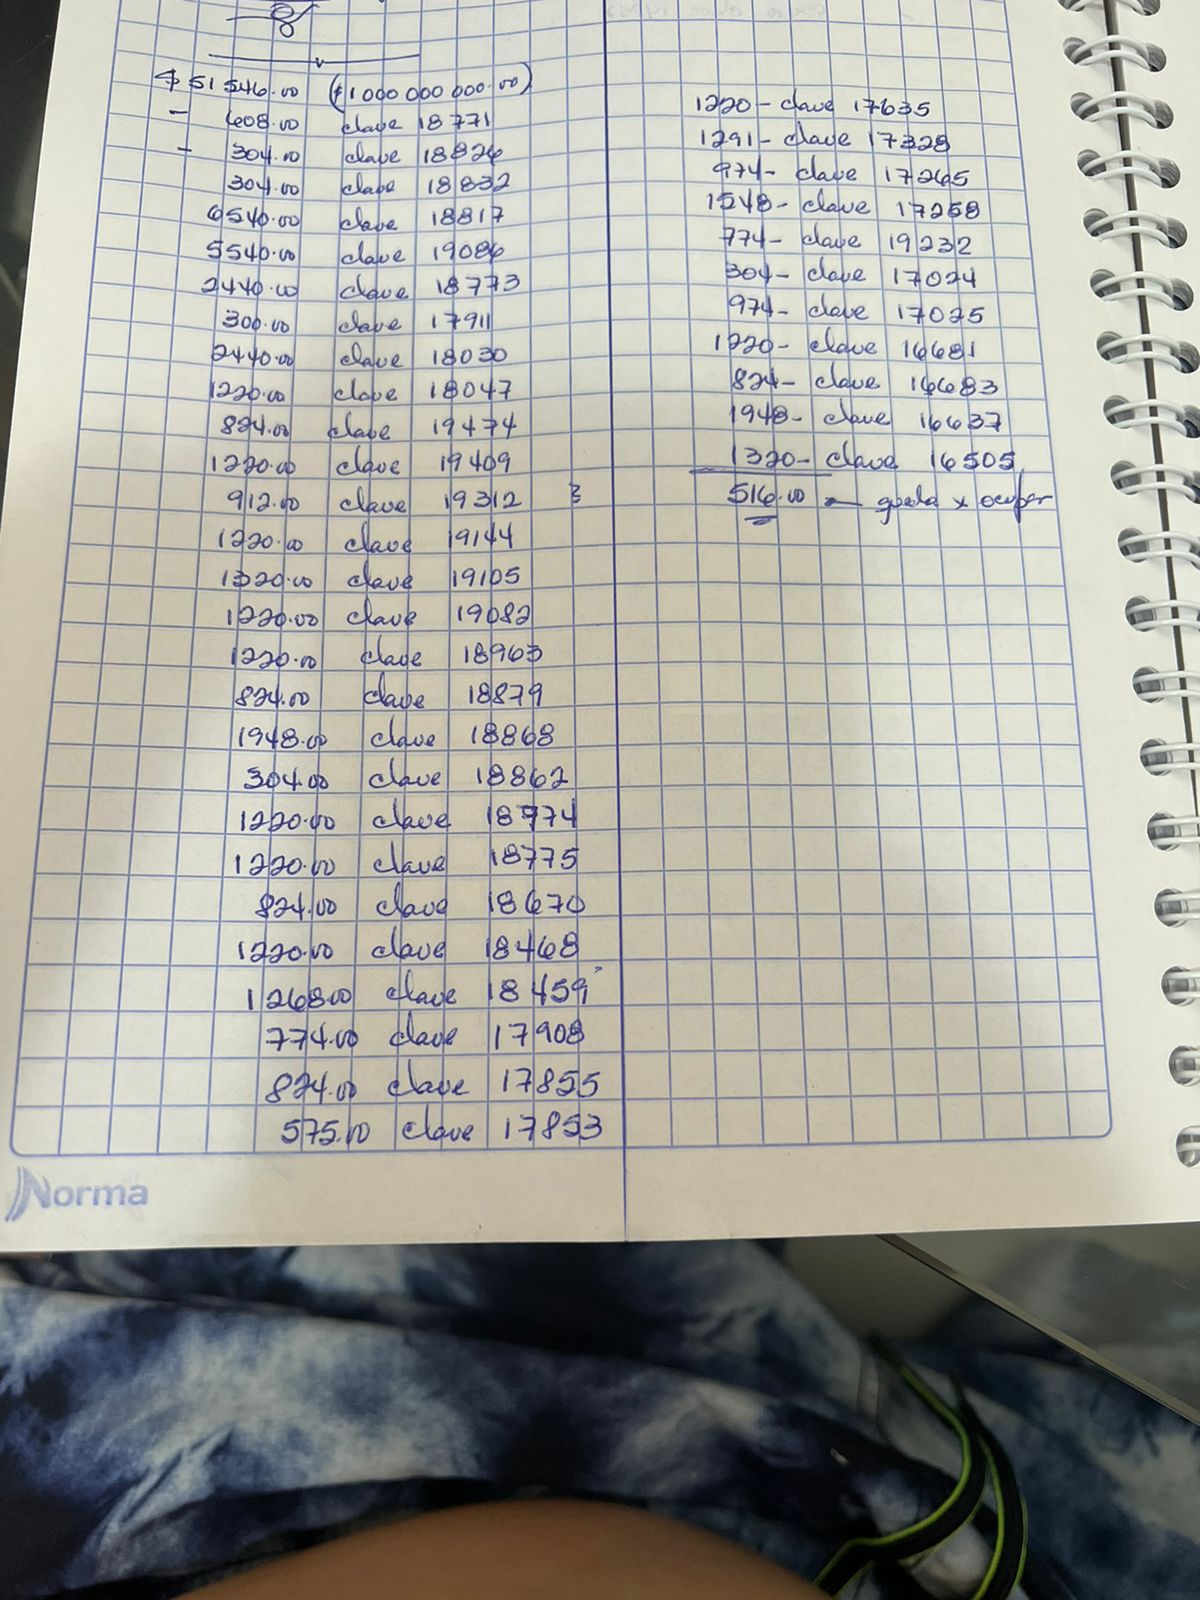 $ 51 546.00 (₡1 000 000 000.00)
- 608.00 clave 18771
- 304.00 clave 18826
304.00 clave 18832
6540.00 clave 18817
5540.00 clave 19086
2440.00 clave 18773
300.00 clave 17911
2440.00 clave 18030
1220.00 clave 18047
824.00 clave 19474
1220.00 clave 19409
912.00 clave 19312
1220.00 clave 19144
1320.00 clave 19105
1220.00 clave 19082
1220.00 clave 18963
824.00 clave 18879
1948.00 clave 18868
304.00 clave 18862
1220.00 clave 18774
1220.00 clave 18775
824.00 clave 18670
1220.00 clave 18468
1268.00 clave 18459
774.00 clave 17908
824.00 clave 17855
575.00 clave 17853
1220- clave 17635
1291- clave 17328
974- clave 17265
1548- clave 17258
774- clave 19232
304- clave 17024
974- clave 17025
1220- clave 16681
824- clave 16683
1948- clave 16637
1320- clave 16505
516.00 — queda x ocupar
Norma